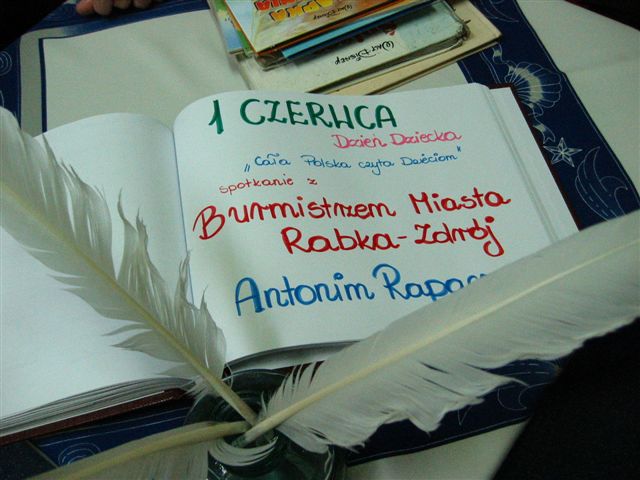 WALT DISNEY
1 CZERWCA
Dzień Dziecka
„Cała Polska czyta Dzieciom”
spotkanie z
Burmistrzem Miasta
Rabka-Zdrój
Antonim